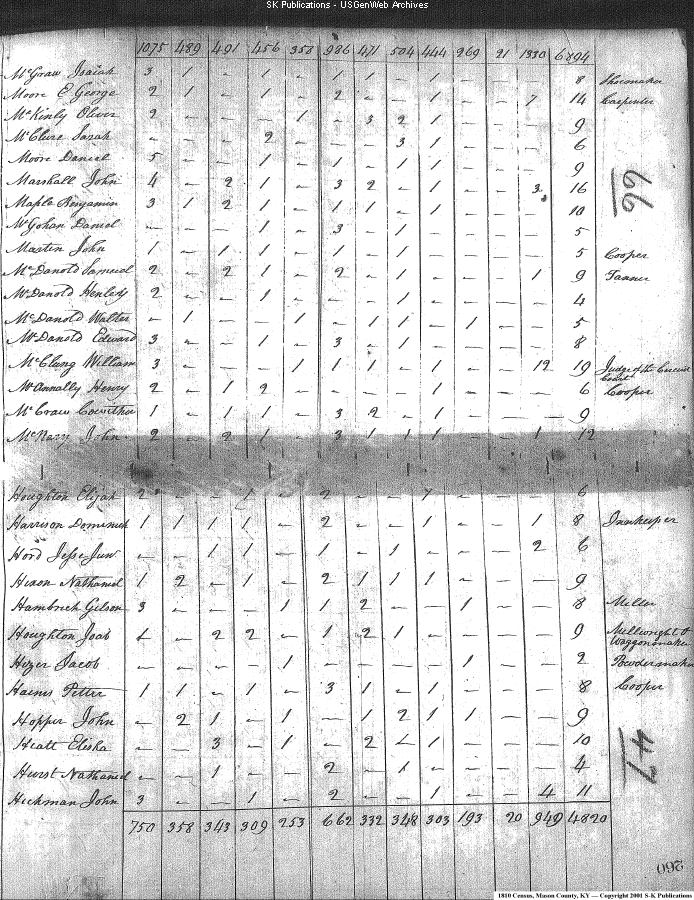 SK Publications - USGenWeb Archives
1075 489 491 456 358 986 471 504 444 269 21 1330 6894
McGraw Isaiah 3 1 - 1 - 1 1 - 1 - - - 8 Shoemaker
Moore E George 2 1 - 1 - 2 - - 1 - - 7 14 Carpenter
McKinly Oliver 2 - - - 1 - 3 2 1 - - - 9
McClure Sarah - - - 2 - - - 3 1 - - - 6
Moore Daniel 5 - - 1 - 1 - 1 1 - - - 9
Marshall John 4 - 2 1 - 3 2 - 1 - - 3 16
Maple Benjamin 3 1 2 1 - 1 1 - 1 - - - 10
McGohan Daniel - - - 1 - 3 - 1 - - - - 5
Martin John 1 - 1 1 - 1 - 1 - - - - 5 Cooper
McDanold Samuel 2 - 2 1 - 2 - 1 - - - 1 9 Tanner
McDanold Henley 2 - - 1 - - - 1 - - - - 4
McDanold Walter - 1 - - 1 - 1 1 - 1 - - 5
McDanold Edward 3 - - 1 - 3 - 1 - - - - 8
McClung William 3 - - - 1 1 1 - 1 - - 12 19 Judge of the Circuit
Court
McAnnally Henry 2 - 1 2 - - - - 1 - - - 6 Cooper
McCraw 1 - 1 1 - 3 2 - 1 - - - 9
McNary John 2 - 2 1 - 3 1 1 1 - - 1 12
Houghton Elijah 2 - - 1 - 2 - - 1 - - - 6
Harrison 1 1 1 1 - 2 - - 1 - - 1 8 Innkeeper
Hord Jesse Junr - - 1 1 - 1 - 1 - - - 2 6
Hixon Nathaniel 1 2 - 1 - 2 1 1 1 - - - 9
Hambrick Gilson 3 - - - 1 1 2 - - 1 - - 8 Miller
Houghton Joab 1 - 2 2 - 1 2 1 - - - - 9 Millwright &
Waggonmaker
Hizer Jacob - - - - 1 - - - - 1 - - 2 Powdermaker
Haines Petter 1 1 - 1 - 3 1 - 1 - - - 8 Cooper
Hopper John - 2 1 - 1 - 1 2 1 1 - - 9
Hiatt Elisha - - 3 - 1 - 2 - 1 - - - 10
Hurst Nathaniel - - 1 - - 2 - 1 - - - - 4
Hickman John 3 - - 1 - 2 - - 1 - - 4 11
750 358 343 309 253 662 332 348 303 193 20 949 4820
66
47
260
1810 Census, Mason County, KY — Copyright 2001 S-K Publications